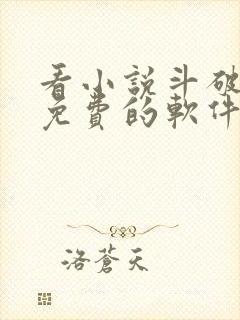 看小説斗破
免費的軟件
洛蒼天